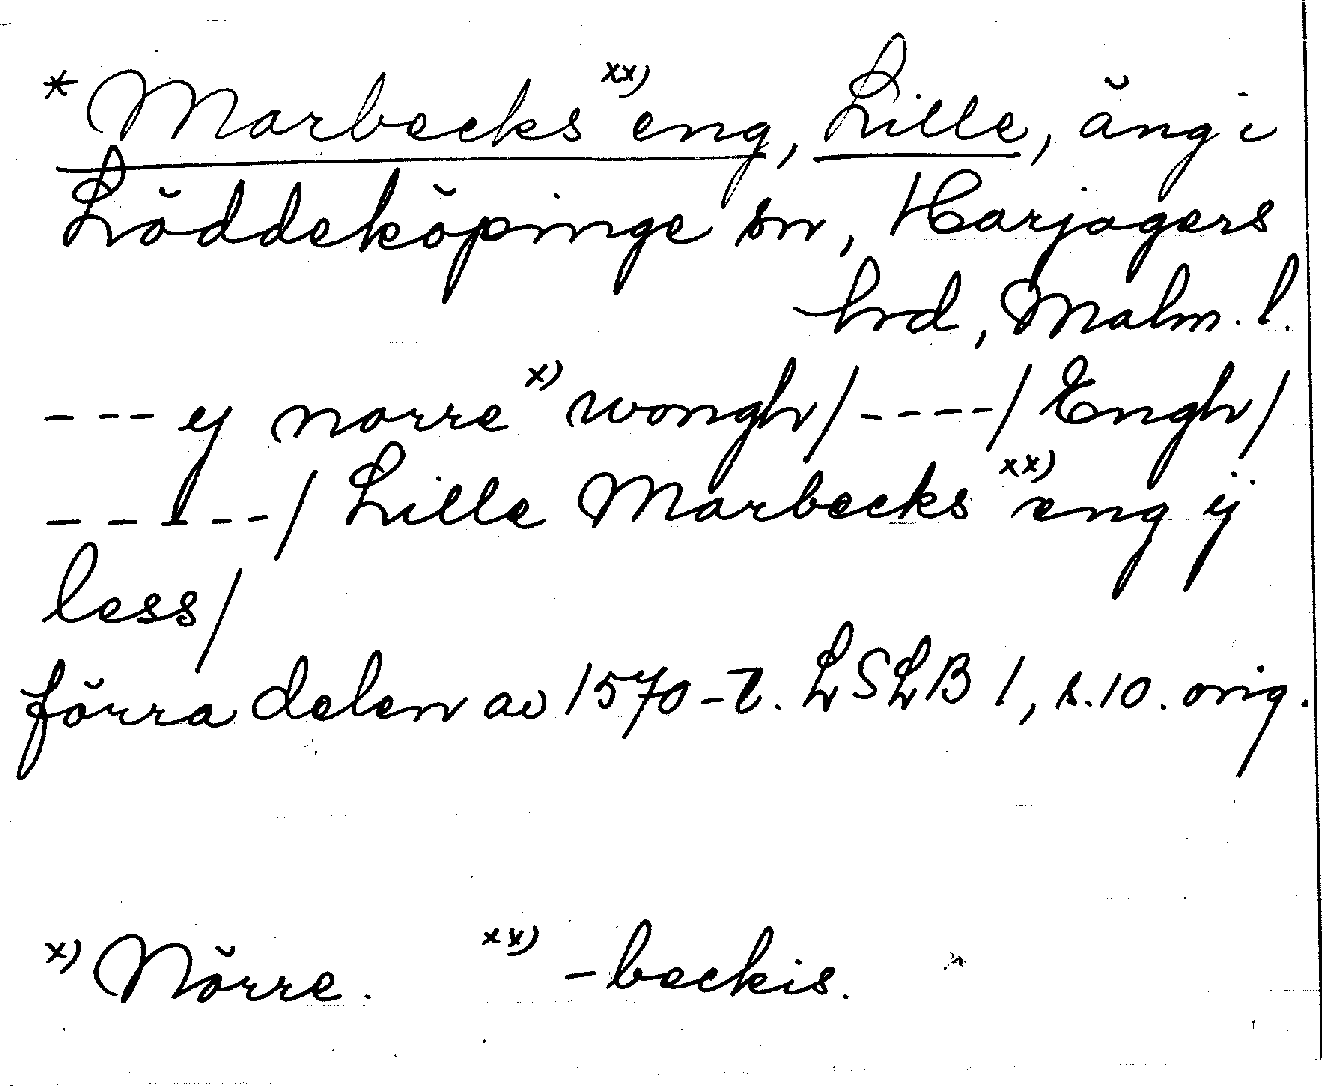 * Marbecks xx) eng, Lille, äng i
Löddeköpinge sn, Harjagers
hrd, Malm. l.
--- ej norre x) wongh/----/Engh/
-----/ Lille Marbecks xx) eng ij
less/
förra delen av 1570-t. LSLB 1, s.10. orig.
x) Nörre. xx) -beckis.